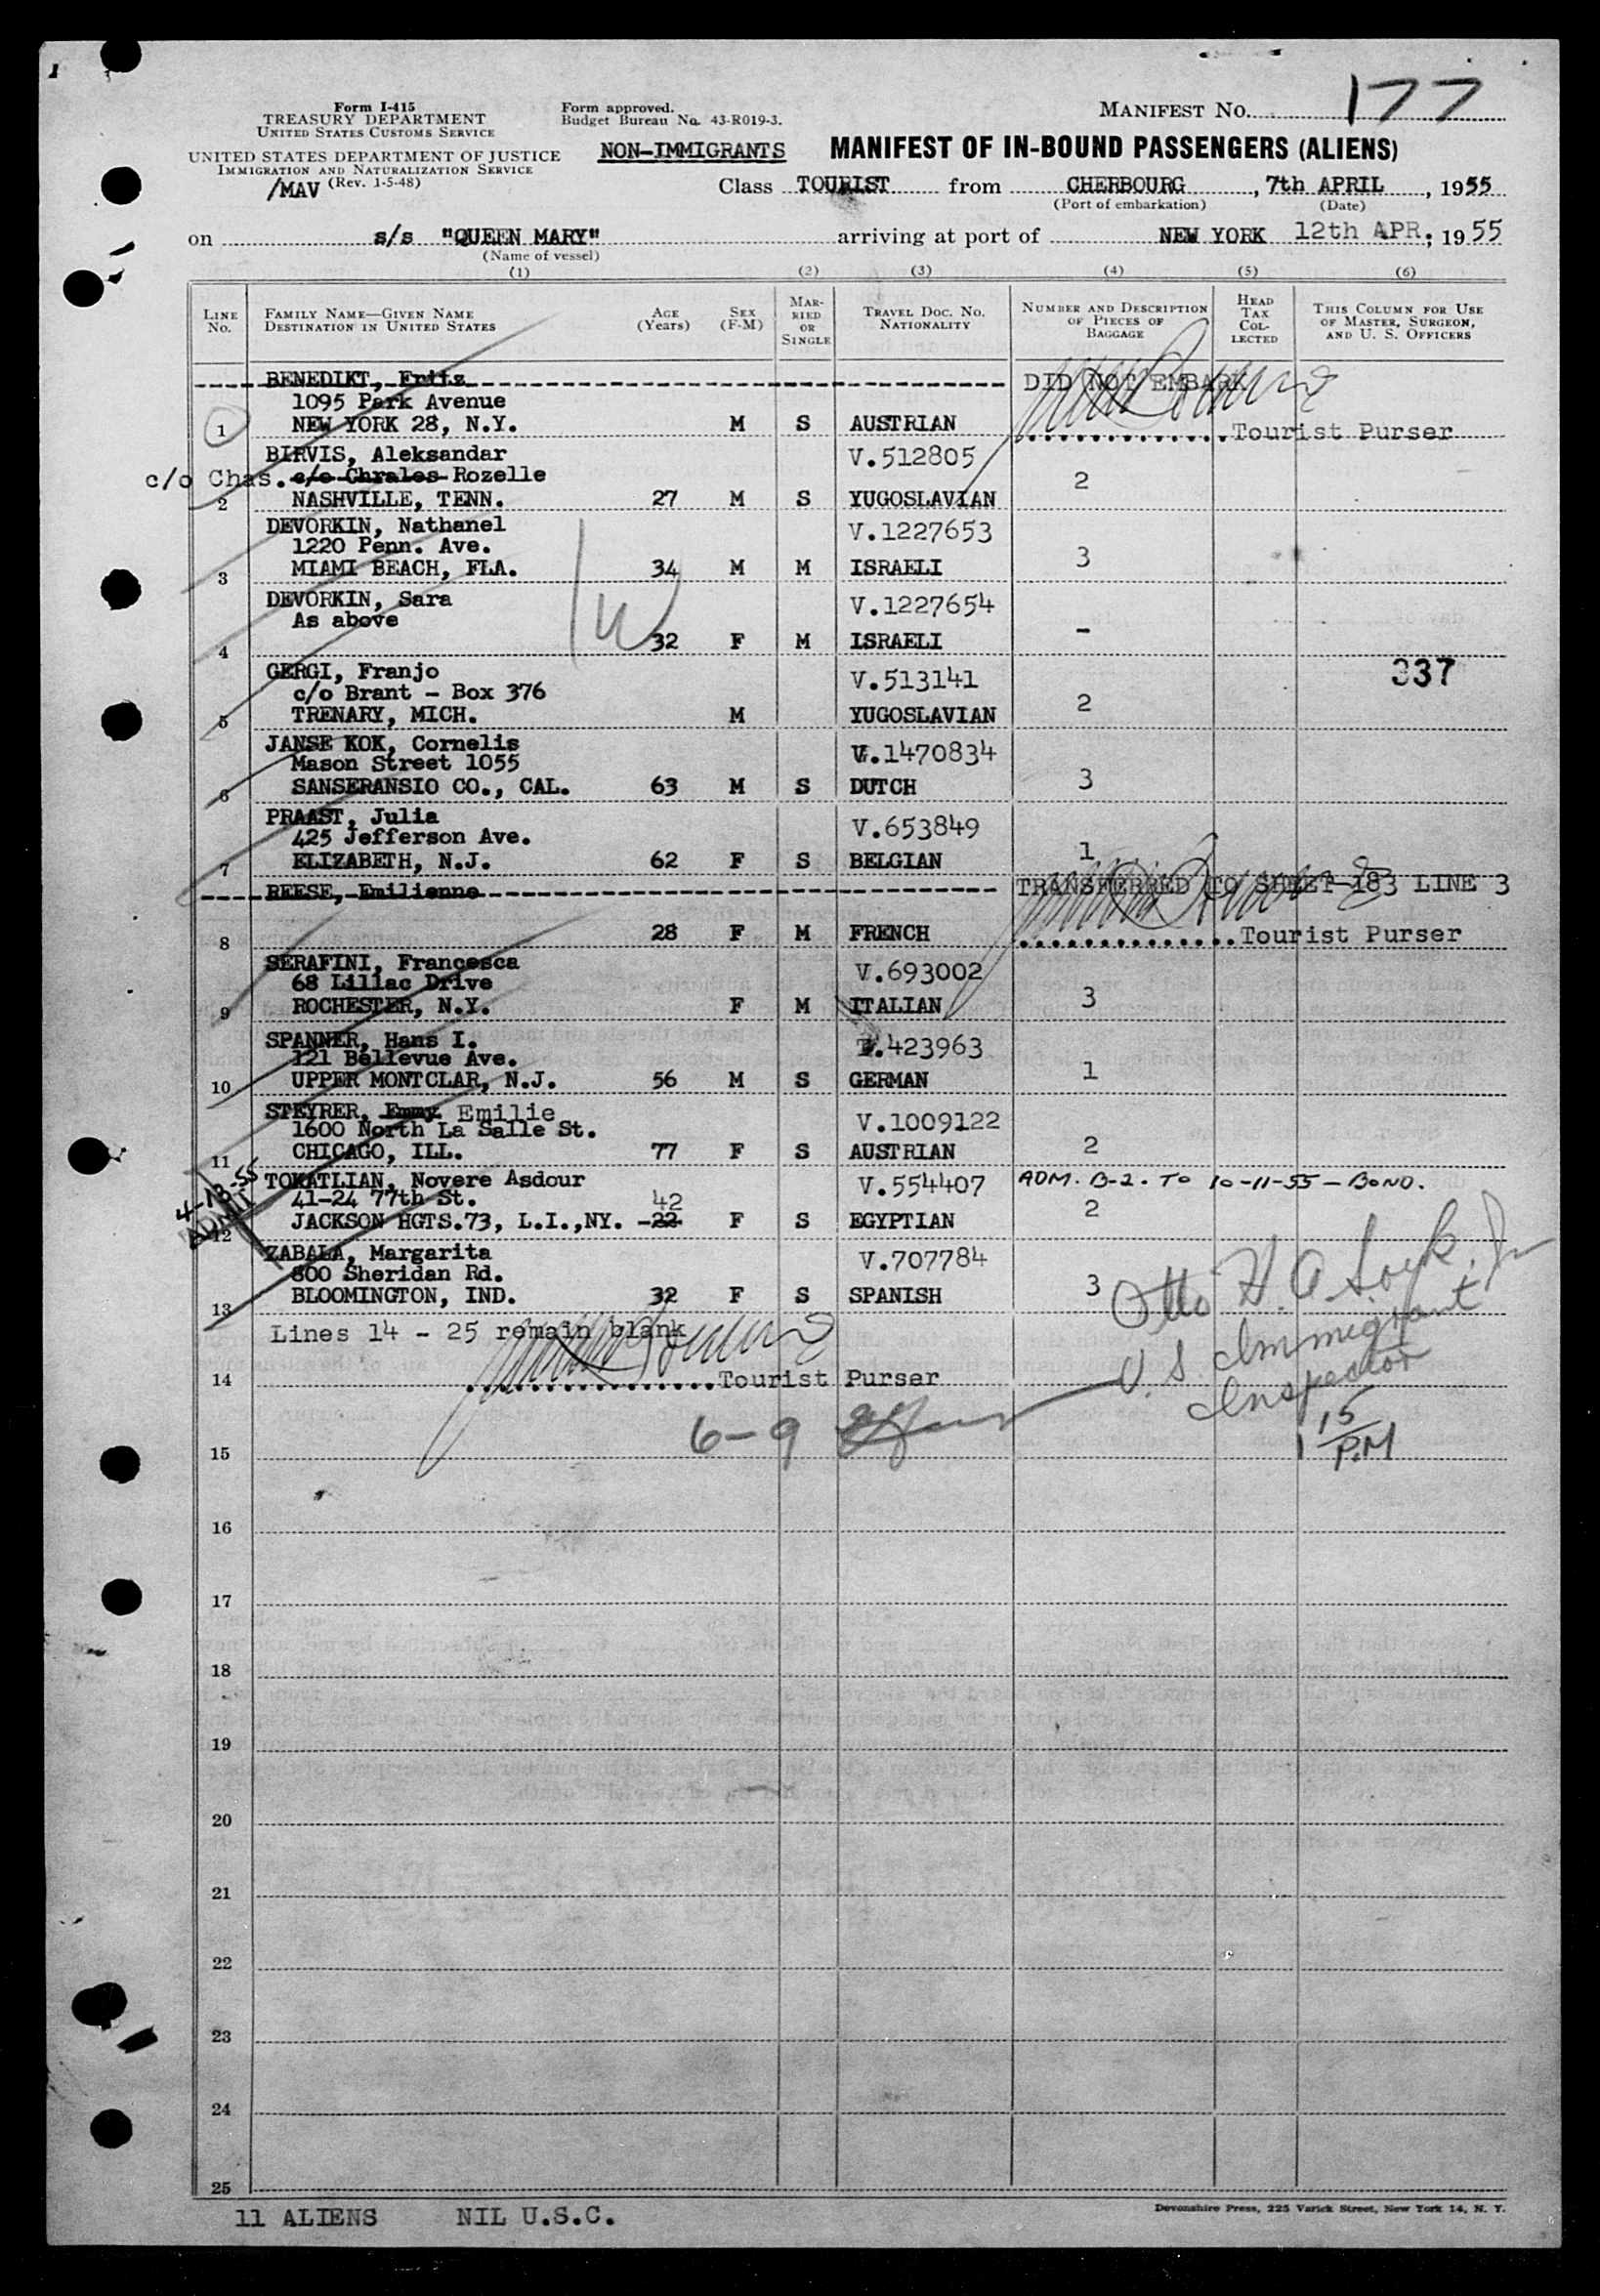 Form I-415
TREASURY DEPARTMENT
UNITED STATES CUSTOMS SERVICE
UNITED STATES DEPARTMENT OF JUSTICE
IMMIGRATION AND NATURALIZATION SERVICE
/MAV (Rev. 1-5-48)
Form approved.
Budget Bureau No. 43-R019-3.
NON-IMMIGRANTS
MANIFEST NO. 177
MANIFEST OF IN-BOUND PASSENGERS (ALIENS)
Class TOURIST from CHERBOURG, 7th APRIL, 1955
(Port of embarkation) (Date)
on s/s "QUEEN MARY" arriving at port of NEW YORK 12th APR., 1955
(Name of vessel)
(1) (2) (3) (4) (5) (6)
LINE NO. FAMILY NAME—GIVEN NAME DESTINATION IN UNITED STATES AGE (YEARS) SEX (F-M) MARRIED OR SINGLE TRAVEL DOC. NO. NATIONALITY NUMBER AND DESCRIPTION OF PIECES OF BAGGAGE HEAD TAX COLLECTED THIS COLUMN FOR USE OF MASTER, SURGEON, AND U. S. OFFICERS
BENEDIKT, Fritz DID NOT EMBARK
1095 Park Avenue
1 NEW YORK 28, N.Y. M S AUSTRIAN Tourist Purser
BIRVIS, Aleksandar V.512805
c/o Chas. c/o Chrales Rozelle 2
2 NASHVILLE, TENN. 27 M S YUGOSLAVIAN
DEVORKIN, Nathanel V.1227653
1220 Penn. Ave. 3
3 MIAMI BEACH, FLA. 34 M M ISRAELI
DEVORKIN, Sara V.1227654
As above
4 32 F M ISRAELI -
GERGI, Franjo V.513141 337
c/o Brant - Box 376 2
5 TRENARY, MICH. M YUGOSLAVIAN
JANSE KOK, Cornelis V.1470834
Mason Street 1055
6 SANSERANSIO CO., CAL. 63 M S DUTCH 3
PRAAST, Julia V.653849
425 Jefferson Ave.
7 ELIZABETH, N.J. 62 F S BELGIAN 1
REESE, Emilienne TRANSFERRED TO SHEET 183 LINE 3
8 28 F M FRENCH Tourist Purser
SERAFINI, Francesca V.693002
68 Lillac Drive
9 ROCHESTER, N.Y. F M ITALIAN 3
SPANNER, Hans I. V.423963
121 Bellevue Ave.
10 UPPER MONTCLAR, N.J. 56 M S GERMAN 1
STEYRER, Emmy Emilie V.1009122
1600 North La Salle St.
11 CHICAGO, ILL. 77 F S AUSTRIAN 2
4-13-55 TOKATLIAN, Novere Asdour V.554407 ADM. B-2. TO 10-11-55 - BOND.
ADMIT 41-24 77th St. 42 2
12 JACKSON HGTS.73, L.I.,NY. 22 F S EGYPTIAN
ZABALA, Margarita V.707784
800 Sheridan Rd.
13 BLOOMINGTON, IND. 32 F S SPANISH 3
Otto H. A.
Lines 14 - 25 remain blank
U. S. Immigrant
Inspector
14 Tourist Purser
1 15 P.M
6-9
15
16
17
18
19
20
21
22
23
24
25
11 ALIENS NIL U.S.C.
Devonshire Press, 225 Varick Street, New York 14, N. Y.